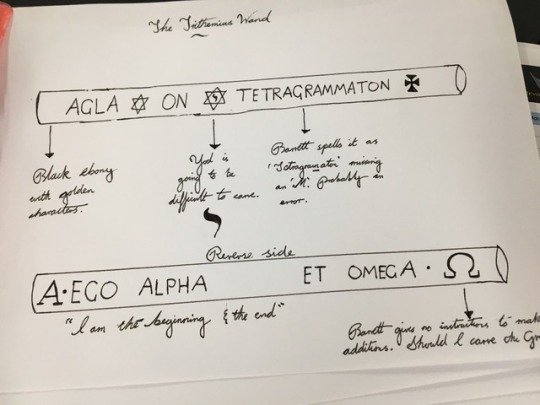 The Trithemius Wand
AGLA ✡ ON ✡ TETRAGRAMMATON ✠
Black ebony
with golden
characters.
Yod is
going to be
difficult to carve.
י
Barrett spells it as
'Tetragramaton' missing
an 'M'. Probably an
error.
Reverse side
A·EGO ALPHA ET OMEGA · Ω
"I am the beginning & the end"
Barrett gives no instructions to
additions. Should I carve the